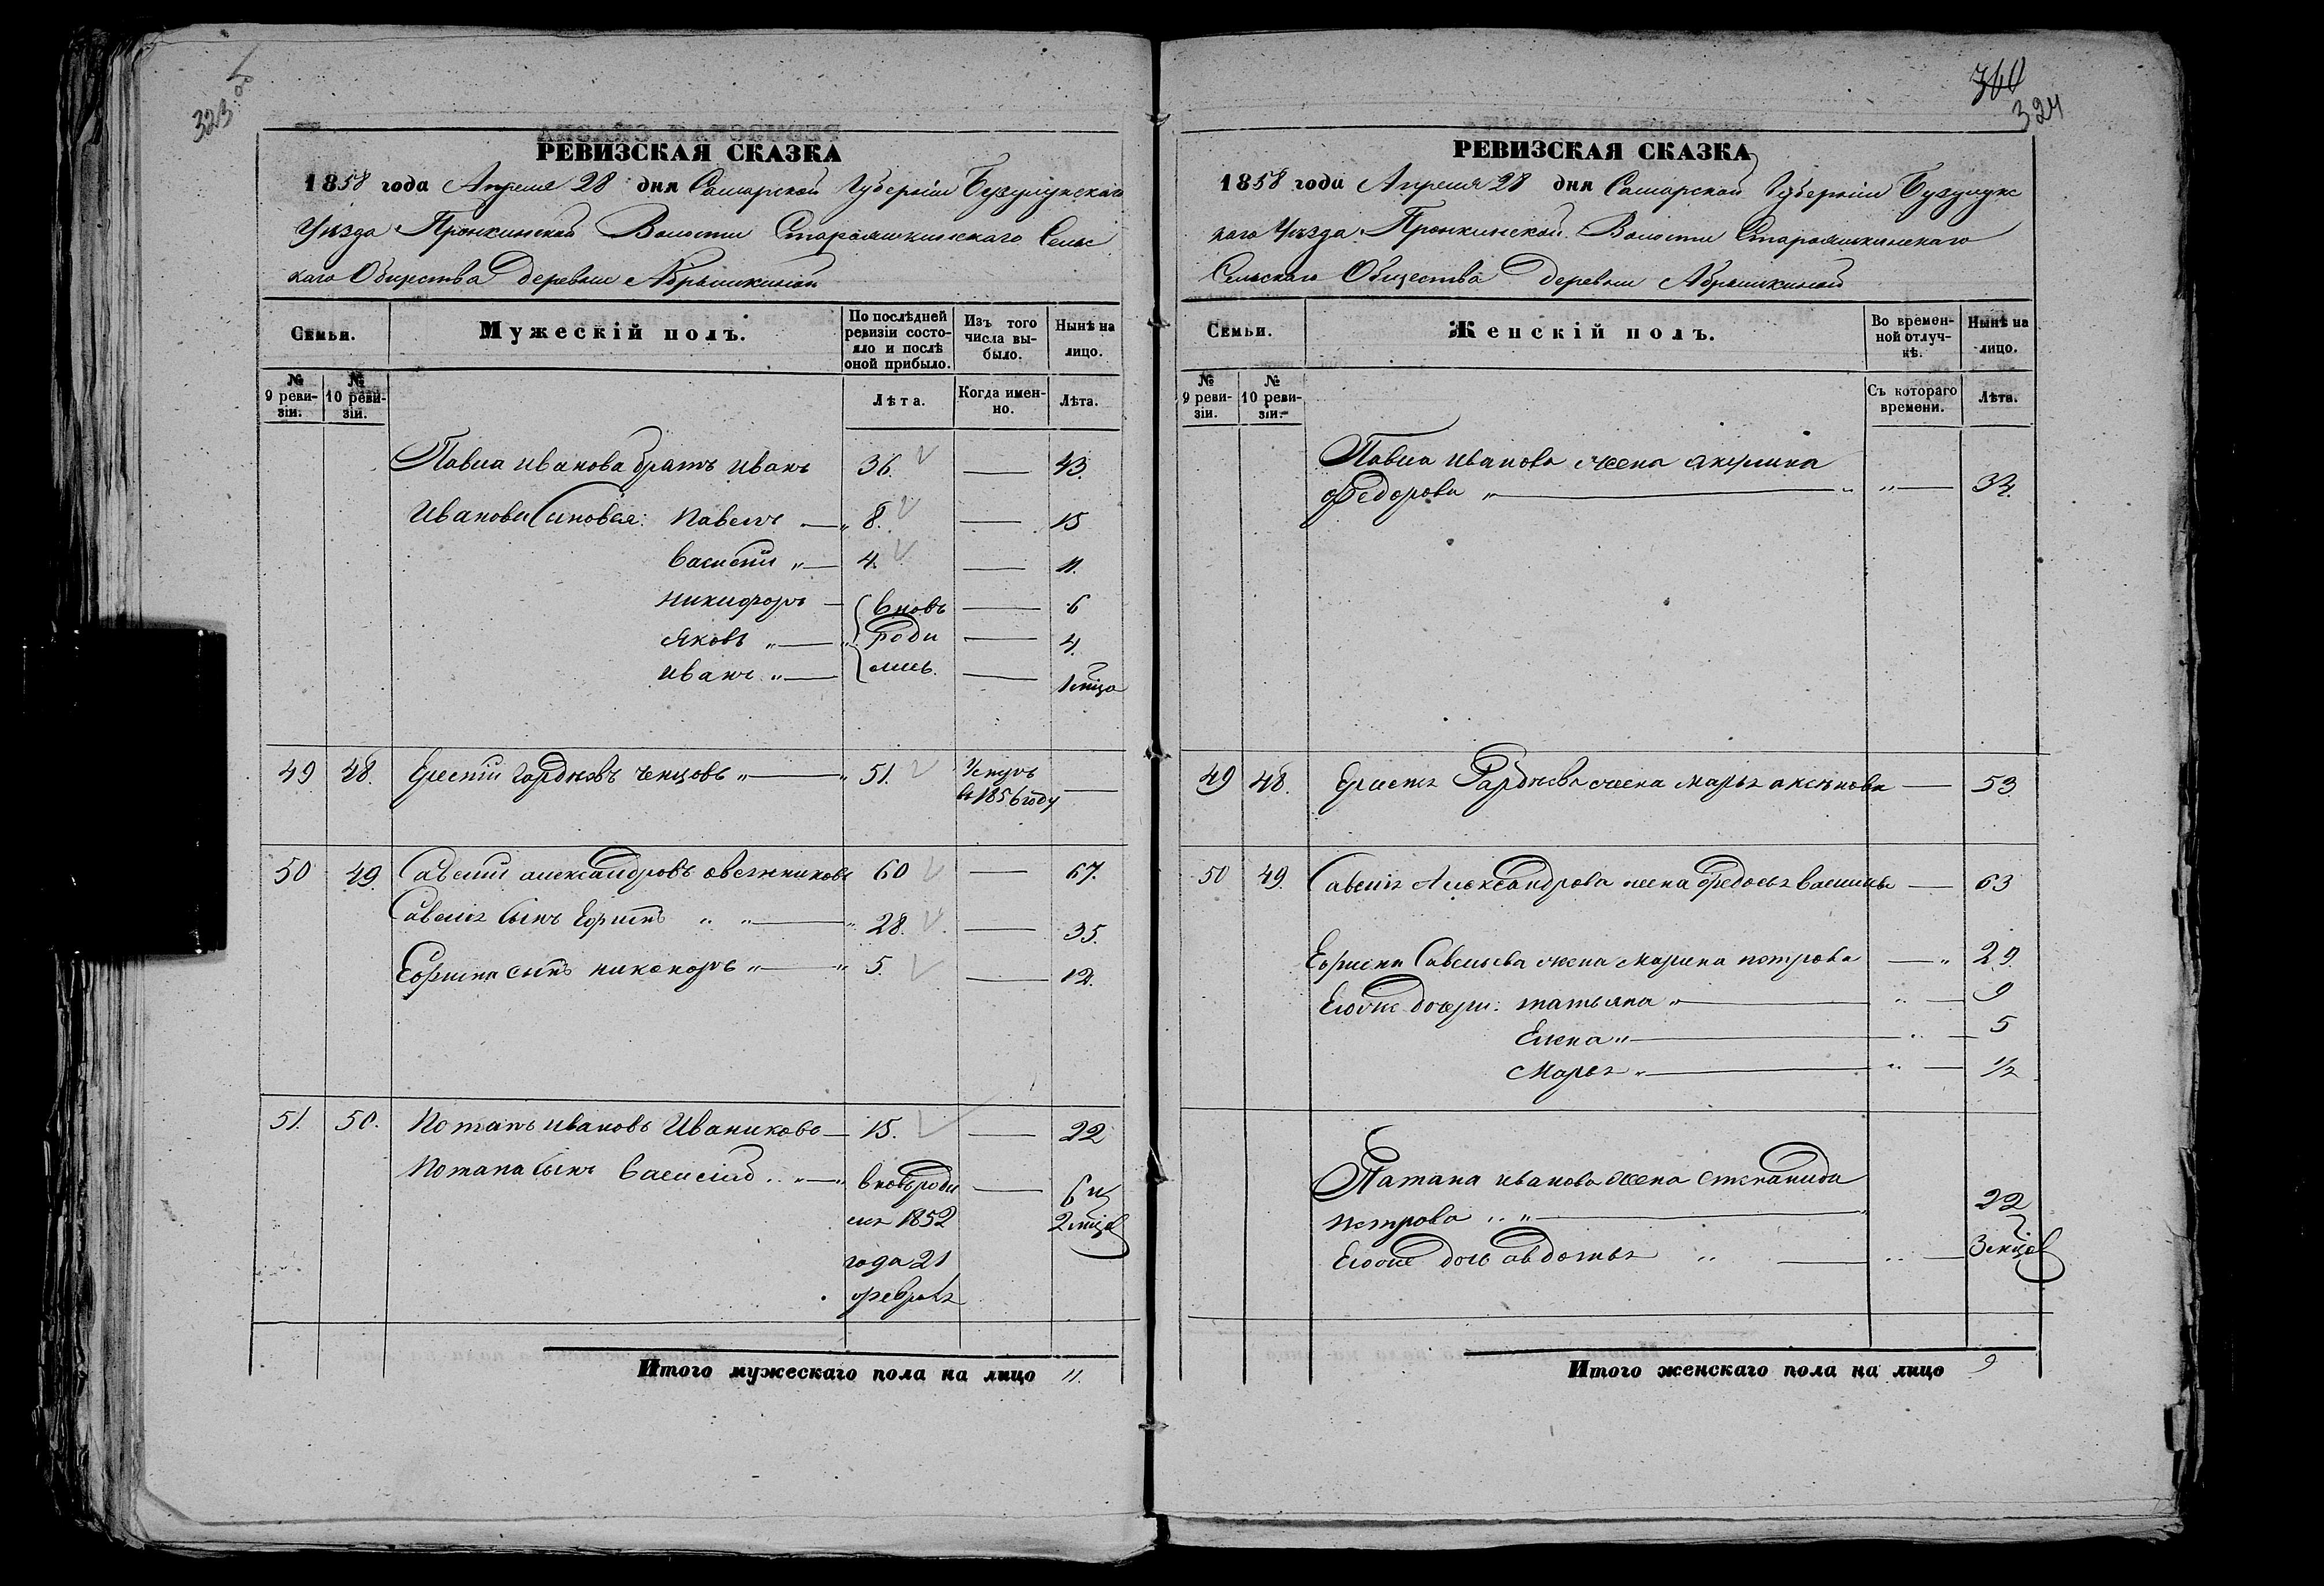 323 об
РЕВИЗСКАЯ СКАЗКА
1858 года Апреля 28 дня Самарской Губернiи Бузулукскаго
Уѣзда Пронкинской Волости Староашкинскаго Сельс
каго Общества Деревни Абрышкиной
Семьи.
Мужескiй полъ.
По послѣдней ревизiи состояло и послѣ оной прибыло.
Изъ того числа выбыло.
Нынѣ на лицо.
№ 9 ревизiи.
№ 10 ревизiи.
Лѣта.
Когда именно.
Лѣта.
Павла Иванова братъ Иванъ 36. — 43.
Ивановы Сыновья: Павелъ — 8. — 15
Василiй „ — 4. — 11.
Никифоръ — вновь — 6
Яковъ „ — роди — 4.
Иванъ „ — лись. — 1 мѣца
49 48. Гордѣевъ Ченцовъ „ — 51. Умеръ —
въ 1856 году
50 49. Савелiй Александровъ Овезчниковъ 60 — 67.
Савелья Сынъ Ефимъ „ „ — 28. — 35.
Ефима сынъ Никоноръ „ — 5. — 12.
51. 50. Потапъ Ивановъ Иваниковъ — 15. — 22
Потапа Сынъ Василiй „ — вновь роди — 6 и
лся 1852 2 мѣца
года 21
февраля
Итого мужескаго пола на лицо 11.
360
324
РЕВИЗСКАЯ СКАЗКА
1858 года Апреля 28 дня Самарской Губернiи Бузулукс
каго Уѣзда Пронкинской Волости Староашкинскаго
Сельскаго Общества Деревни Абрышкиной
Семьи.
Женскiй полъ.
Во временной отлучкѣ.
Нынѣ на лицо.
№ 9 ревизiи.
№ 10 ревизiи.
Съ котораго времени.
Лѣта.
Павла Иванова жена Акулина
Федорова „ — „ „ — 34.
49 48. Гардѣева жена Марья — 53
50 49. Савелья Александрова жена Федосья Васильева — 63
Ефима Савельева жена Марина Петрова — „ 29.
Еговые дочери: Татьяна „ — „ — 9
Елена „ — „ — 5
Марья „ — „ — 1/2
Патапа Иванова жена Степанида
Петрова „ „ — 22
Еговые дочь Авдотья „ — „ — 3 мѣца
Итого женскаго пола на лицо 9